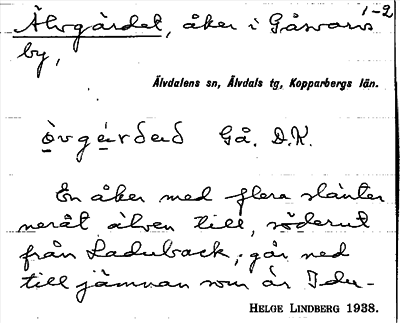 1-2
Älvgärdet, åker i Gåsvarvs
by,
Älvdalens sn, Älvdals tg, Kopparbergs län.
Gå. D.K.
En åker med flera slänter
neråt älven till, söderut
från Laduback, går ned
till jämnan som är Idu-
HELGE LINDBERG 1938.